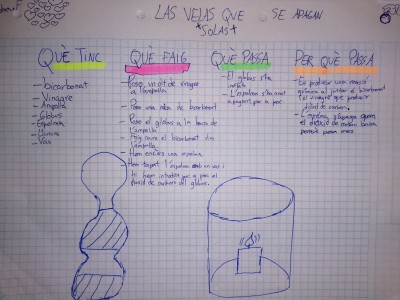 LAS VELAS QUE SE APAGAN
*SOLAS*
QUÈ TINC
- bicarbonat
- Vinagre
- Ampolla
- Globus
- Espelma
- Vas
QUÈ FAIG
- Poso un dit de vinagre a l'ampolla
- Poso una mica de bicarbonat
- Poso el globus a la boca de l'ampolla
- Faig caure el bicarbonat dins l'ampolla
- Hem encès una espelma
- Hem tapat l'espelma amb un vas i
QUÈ PASSA
- El globus s'ha inflat
- L'espelma s'ha anat apagant poc a poc
PER QUÈ PASSA
- Es produeix una reacció química al juntar el bicarbonat i el vinagre que produeix diòxid de carboni.
- L'espelma s'apaga quan el diòxid de carboni baixa perquè pesa més